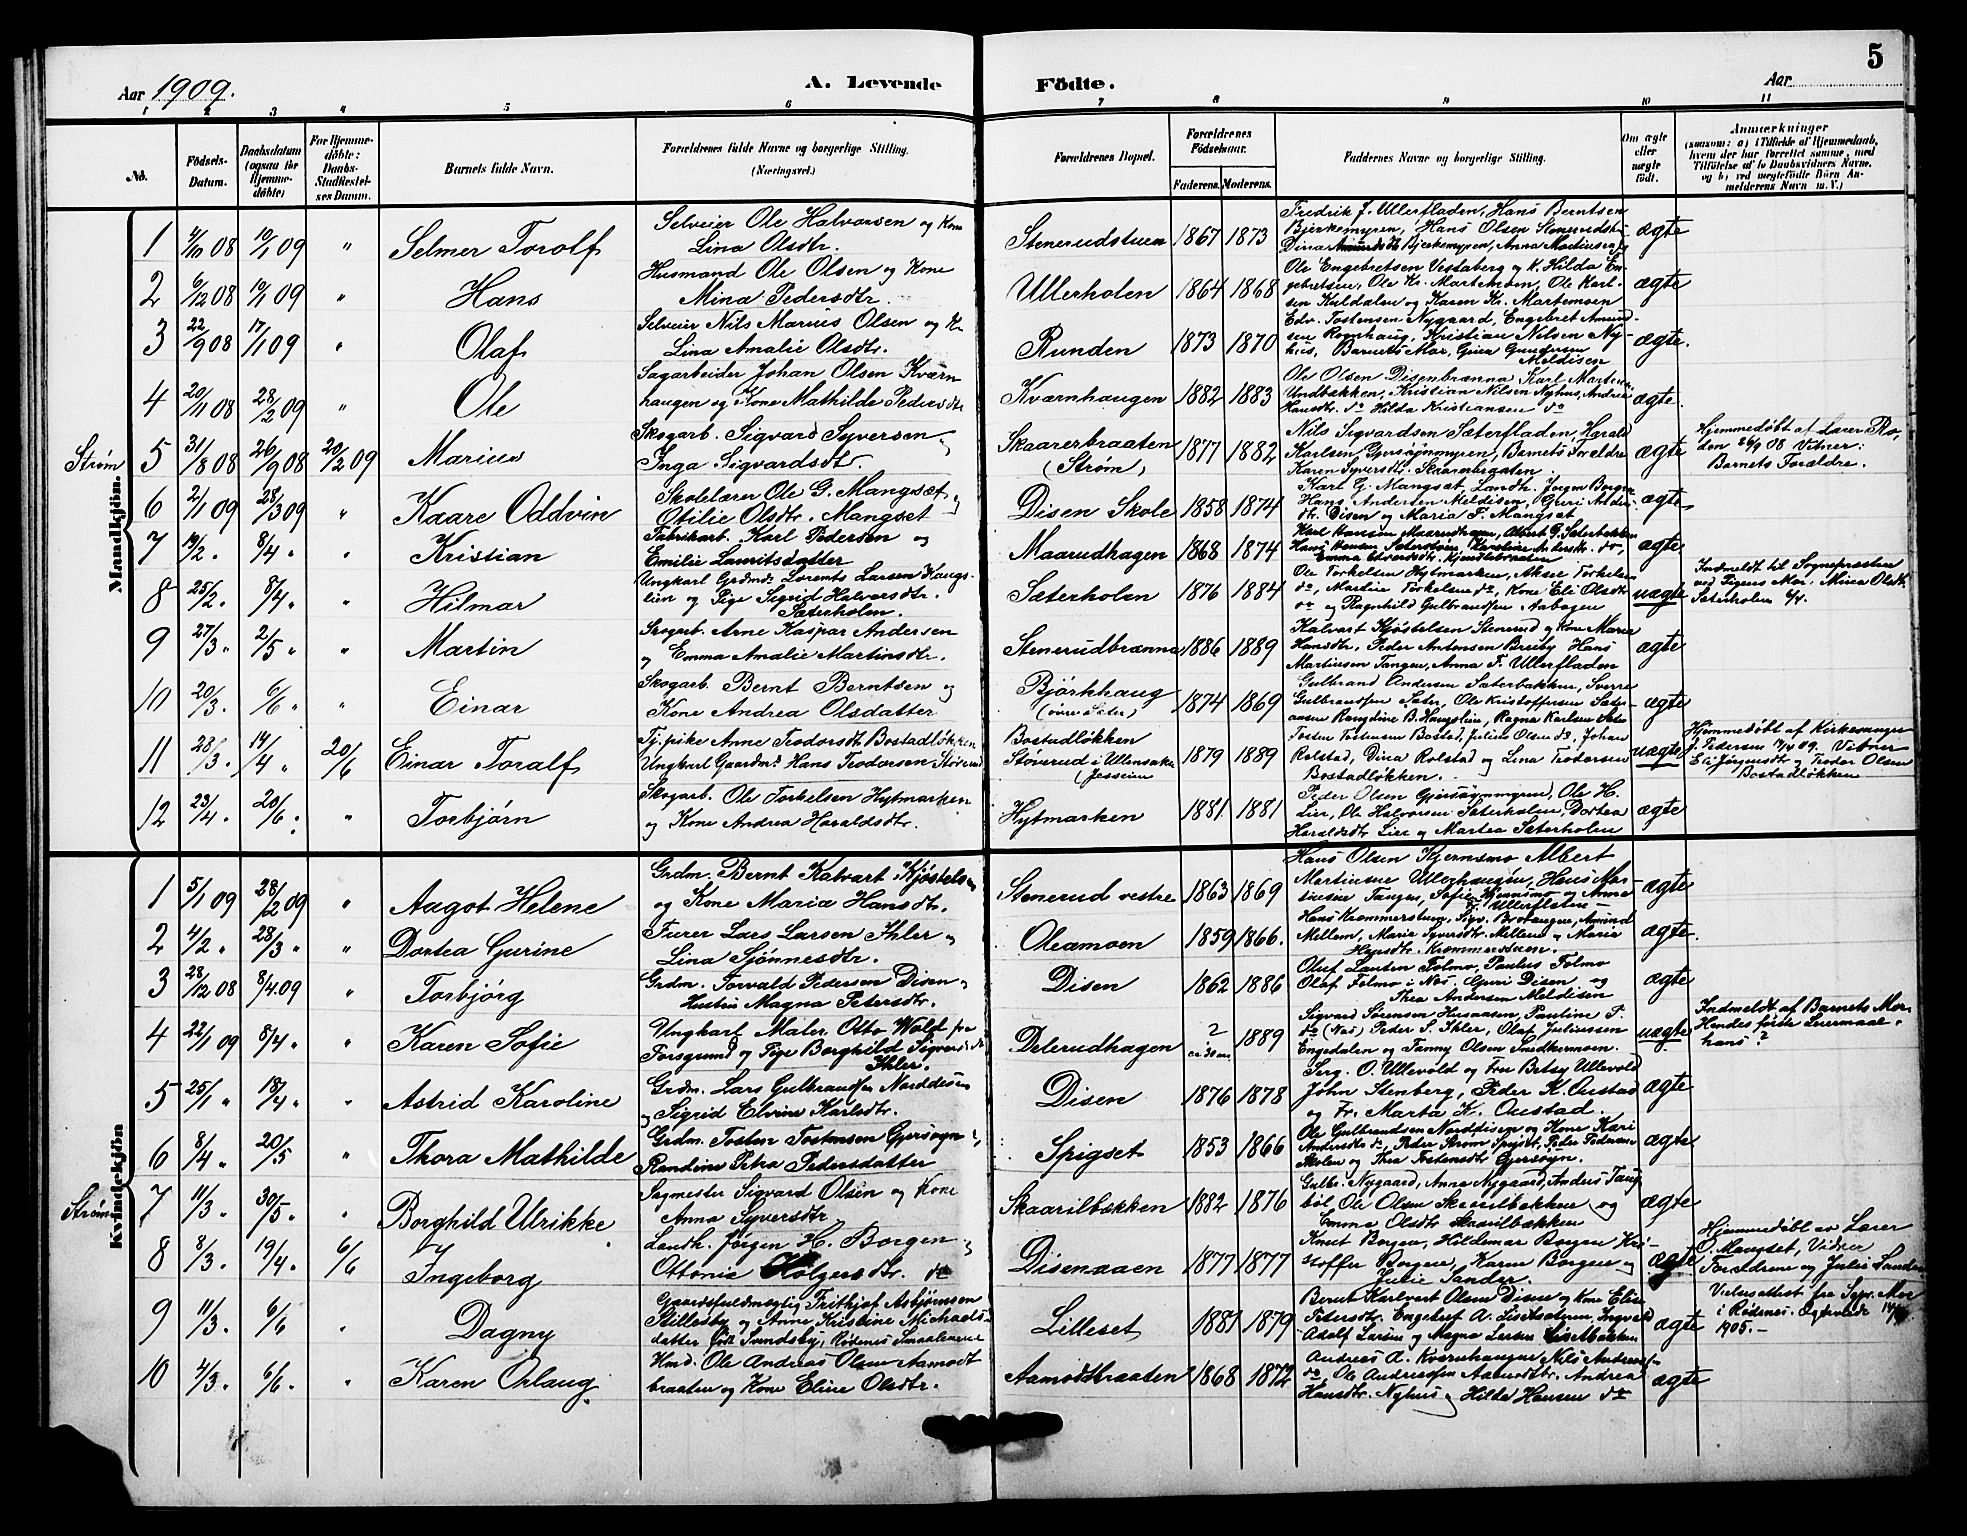 5
Aar 1909.
A. Levende Födte.
Aar
1 2 3 4 5 6 7 8 9 10 11
No.
Födsels-Datum.
Daabsdatum (ogsaa for Hjemmedöbte)
For Hjemmedöbte: Daabs-Stadfæstelses Datum.
Barnets fulde Navn.
Forældrenes fulde Navne og borgerlige Stilling. (Næringsvei.)
Forældrenes Bopæl.
Forældrenes Födselsaar.
Faderens. Moderens.
Faddernes Navne og borgerlige Stilling.
Om ægte eller uægte födt.
Anmærkninger
(saasom: a) i Tilfælde af Hjemmedaab, hvem der har forrettet samme, med Tilföielse af to Daabsvidners Navne, og b) ved uægtefödte Börn Anmelderens Navn m.V.)
Mandkjön.
1 4/10 08 10/1 09 " Selmer Toralf Selveier Ole Halvorsen og Kone Lina Olsdtr. Stenerudstuen 1867 1873 Fredrik J. Ullerfladen, Hans Berntsen Bjerkemyren, Hans Olsen ægte
2 6/12 08 10/1 09 " Hans Husmand Ole Olsen og Kone Mina Pedersdtr. Ullerholen 1864 1868 Ole Engebretsen Vestaberg og K. Hilda Engebretsen, Ole Kr. Martemoen, Ole Karlsen Kuldalen og Karen Kr. Martemoen ægte
3 22/9 08 17/1 09 " Olaf Selveier Nils Marius Olsen og K. Lina Amalie Olsdtr. Runden 1873 1870 Edv. Tostensen Nygaard, Engebret Amundsen Rognhaug, Kristian Nilsen Nyhus, Barnets Mor, Gina Gundersen Meldisen ægte.
4 20/11 08 28/2 09 " Ole Sagarbeider Johan Olsen Kværnhaugen og Kone Mathilde Pedersdtr Kværnhaugen 1882 1883 Ole Olsen Disenbrænna Karl Martins. Undbekken, Kristian Nilsen Nyhus, Andrea Hansdtr. do Hilda Kristiansen do ægte
Strøm 5 31/8 08 26/9 08 20/2 09 Marius Skogarb. Sigvard Syversen Inga Sigvardsdtr. Skaarerbraaten (Strøm) 1877 1882 Nils Sigvardsen Sæterfladen, Harald Karlsen Gjersøymyren, Barnets Forældre Karen Syversdtr. Skaarerbraaten. ægte Hjemmedøbt af Lærer 26/9 08 Vitner: Barnets Forældre.
6 2/1 09 28/3 09 " Kaare Oddvin Skolelærer Ole G. Mangset Otilie Olsdtr. Mangset Disen Skole 1858 1874 Karl G. Mangset, Landh. Jørgen Borgen Hans Andersen Meldisen, Guri Andersdtr. Disen og Maria F. Mangset ægte
7 19/2 " 8/4 " " Kristian Fabrikarb. Karl Pedersen og Emilie Lauritsdatter Maarudhagen 1868 1874 ægte
8 25/2 . 8/4 . " Hilmar Ungkarl Grdmd. Lorents Larsen Haugslien og Pige Sigrid Halvorsdtr. Sæterholen. Sæterholen 1876 1884 Ole Torkelsen Hytmarken, Aksel Torkelsen do, Martin Torkelsen do, Kone Eli Olsdtr do og Ragnhild Gulbrandsen Aabogen uægte Indmeldt til Sognepræsten ved Pigens Mor. Mina Olsdtr. Sæterholen
9 27/3 " 2/5 " " Martin Skogarb. Arne Kaspar Andersen og Emma Amalie Martinsdtr. Stenerudbrænna 1886 1889 Kalvart Kjøstelsen Stenerud og Kone Maria Hansdtr, Peder Antonsen Hans Martinsen Tangen, Anna F. Ullerfladen ægte
10 20/3 . 6/6 " " Einar Skogarb. Bernt Berntsen og Kone Andrea Olsdatter Bjørkhaug (øvre Sæter) 1874 1869 Gulbrand Andersen Sæterbakken, Sverre Gulbrandsen Sæter, Ole Kristoffersen B. Haugslien, Ragna Karlsen ægte
11 28/3 . 14/4 " 20/6 Einar Toralf Tj. pike Anne Teodorsdtr Bostadløkken Ungkarl Gaardm. Hans Teodorsen Støverud Bostadløkken Støverud i Ullensaker (Jessheim) 1879 1889 Tosten Tostensen Bostad, Julius Olsen do, Johan Rolstad, Dina Rolstad og Lina Teodorsen Bostadløkken. uægte Hjemmedøbt af Kirkesanger J. Pedersen 14/4 09. Vitner Eli Jörgensdtr og Teodor Olsen Bostadløkken
12 23/4 . 20/6 . " Torbjørn Skogarb. Ole Torkelsen Hytmarken og Kone Andrea Haraldsdtr. Hytmarken 1881 1881 Peder Olsen Gjersøymyren, Ole H. Lier, Ole Halvorsen Sæterholen, Dortea Haraldsdtr Lier og Martea Sæterholen ægte
Kvindekjön
1 5/1 09 28/2 09 " Aagot Helene Grdm. Bernt Kalvart Kjøstelsen og Kone Maria Hansdtr. Stenerud vestre 1863 1869 Hans Olsen Kjernsmo Albert Martinsen Ullerhaugen, Hans Martinsen Tangen, Sofie Kjernsmo og Anna F. Ullerflaten ægte
2 4/2 " 28/3 " " Dortea Gurine Furer Lars Larsen Ihler og Lina Sjønnesdtr. Oleamoen 1859 1866. Hans Krommerstuen, Sigv. Brovangen, Amund Mellem, Maria Syversdtr. Mellem og Maria Krommerstuen. ægte.
3 28/12 08 8/4 09 " Torbjörg Grdm. Torvald Pedersen Disen og Hustru Magna Petersdtr. Disen 1862 1886 Oluf Lauten Folmo, Paulus Folmo Olaf Folmo i Nos, Guri Disen og Thea Andersen Meldisen ægte
4 22/1 09 8/4 " " Karen Sofie Ungkarl Maler Otto Wold fra Forsgrund og Pige Borghild Sigversdtr Ihler. Delerudhagen ? ca 30 aar 1889 Sigvard Sörensen Husaasen, Pauline P. do (Nos) Peder S. Ihler, Olaf Juliussen Engedalen og Fanny Olsen Snedkermoen. uægte Indmeldt af Barnets Mor. Hendes første Leiermaal. hans?
5 25/1 " 18/4 " " Astrid Karoline Grdm. Lars Gulbrandsen Norddisen og Sigrid Elvine Karlsdtr. Disen 1876 1878 Serg. O. Ullevold og Fru Betsy Ullevold John Stenberg, Peder K. Austad og Fr. Marta K. Austad. ægte
6 8/4 . 20/5 " Thora Mathilde Grdm. Tosten Tostensen Gjersøyn Randine Petra Pedersdatter Spigset 1853 1866 Ole Gulbrandsen Norddisen og Kone Kari Andersdtr do, Peder Strøm Spigset, Peder Pedersen Skolen og Thea Tostensdtr Gjersøyn. ægte
Strøm 7 11/3 . 30/5 . " Borghild Ulrikke Sagmester Sigvard Olsen og Kone Anna Syversdtr Skaarilbækken 1882 1876 Gulbr. Nygaard, Anna Nygaard, Anders Taugbøl, Ole Olsen Skaarilbækken og Emma Olsdtr Skaarilbækken ægte
8 8/3 . 19/4 . 6/6 Ingeborg Landh. Jørgen H. Borgen og Ottonie Holgersdtr. do Disenaaen 1877 1877 Knut Borgen, Hildemar Borgen Kristoffer Borgen, Karen Borgen og Julie Sander. ægte Hjemmedøbt av Lærer O. Mangset, Vidner Forældrene og Julie Sander
9 11/3 . 6/6 " Dagny Gaardsfuldmægtig Frithjof Asbjørnsen Stillesby og Anne Kristine Michaelsdatter født Sundsby, Rødenes Smaalenene Lilleset 1881 1879 Bernt Karlvart Olsen Disen og Kone Elise Petersdtr. Engebret A. Ingvald Adolf Larsen og Magna Larsen ægte Vielsesattest fra Spr. Moe i Rødenes. Ægteviede 1905.-
10 4/3 . 6/6 . " Karen Orlaug Hmd. Ole Andreas Olsen Aamodtbraaten og Kone Eline Olsdtr. Aamodtbraaten 1868 1872 Andreas A. Kværnhaugen Nils Andreas do, Ole Andreassen Aamodtbr. Andrea Hansdtr. Nyhus og Hilda Hansen do ægte